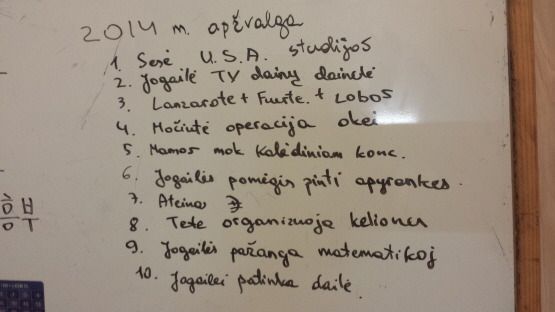 2014 m. apžvalga
1. Sesė U.S.A. studijos
2. Jogailė TV dainų dainelė
3. Lanzarote + Fuerte. + LOBOS
4. Močiutė operacija okei
5. Mamos mok Kalėdiniam konc.
6. Jogailės pomėgis pinti apyrankes.
7. Ateinas
8. Tete organizuoja keliones
9. Jogailės pažanga matematikoj
10. Jogailei patinka dailė.